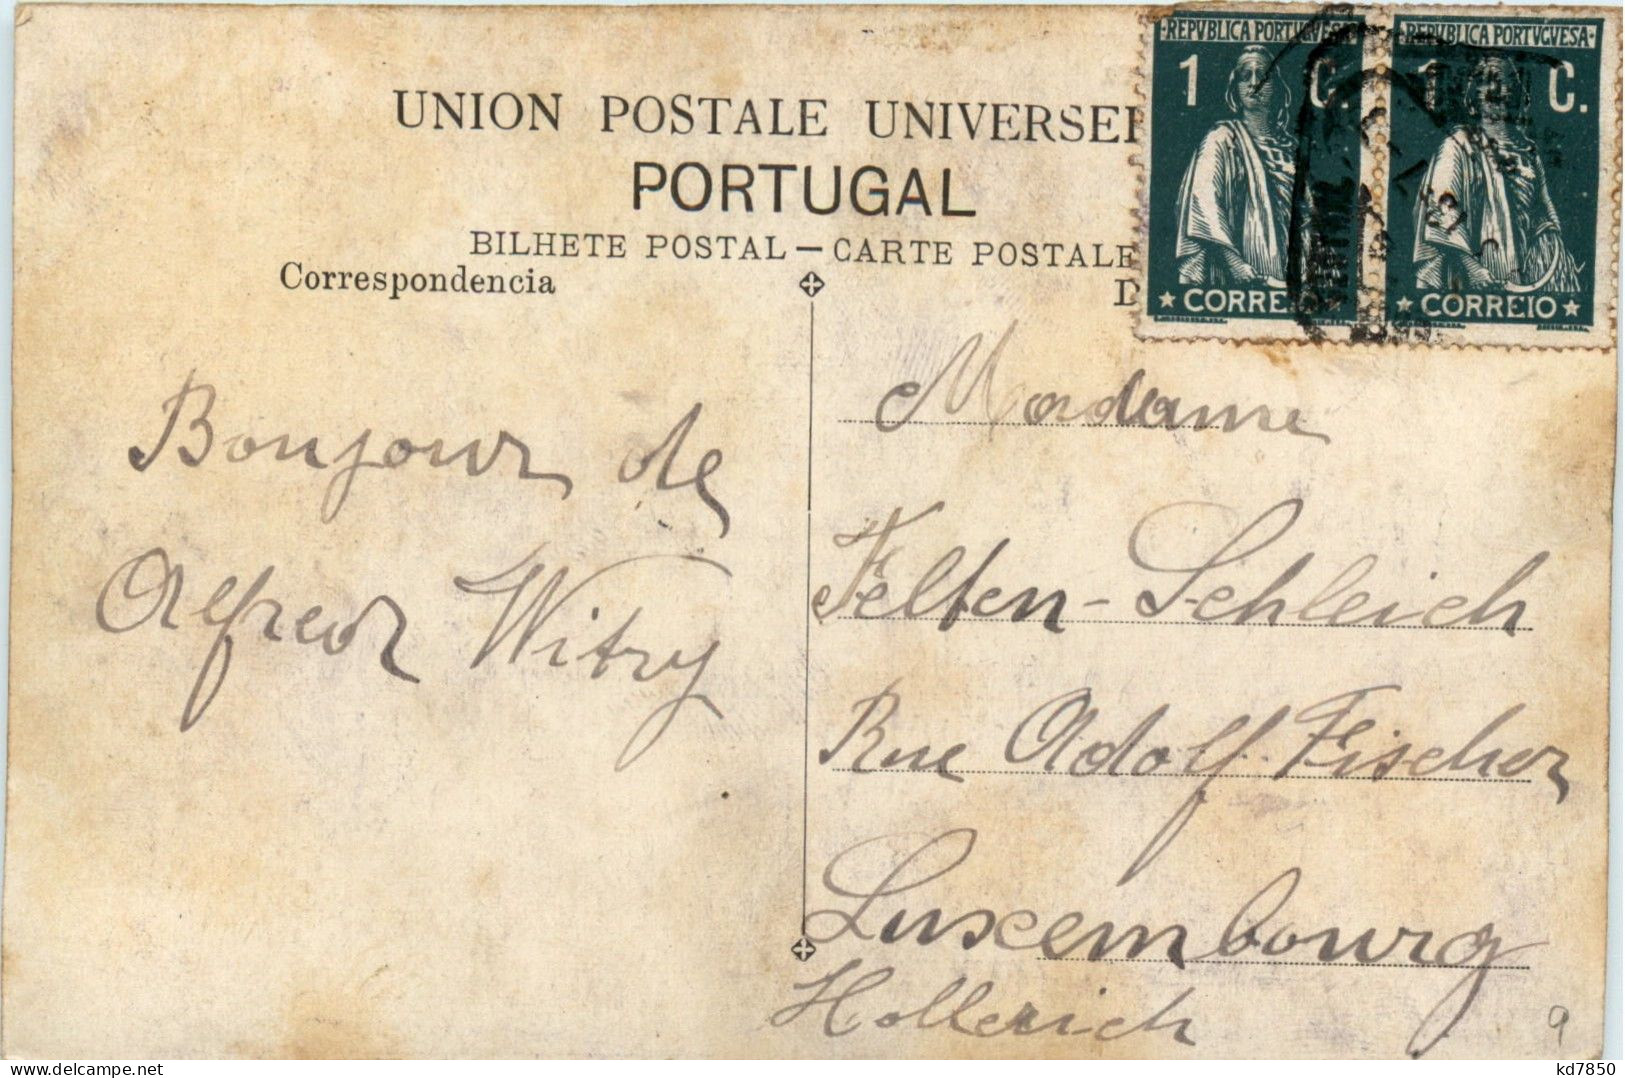 REPVBLICA PORTVGVESA
REPVBLICA PORTVGVESA
1 C.
1 C.
CORREIO
CORREIO
UNION POSTALE UNIVERSEL
PORTUGAL
BILHETE POSTAL — CARTE POSTALE
Correspondencia
D
Bonjour de
Alfred Witry
Madame
Felten-Schleich
Rue Adolf Fischer
Luxembourg
Hollerich
9
kd7850